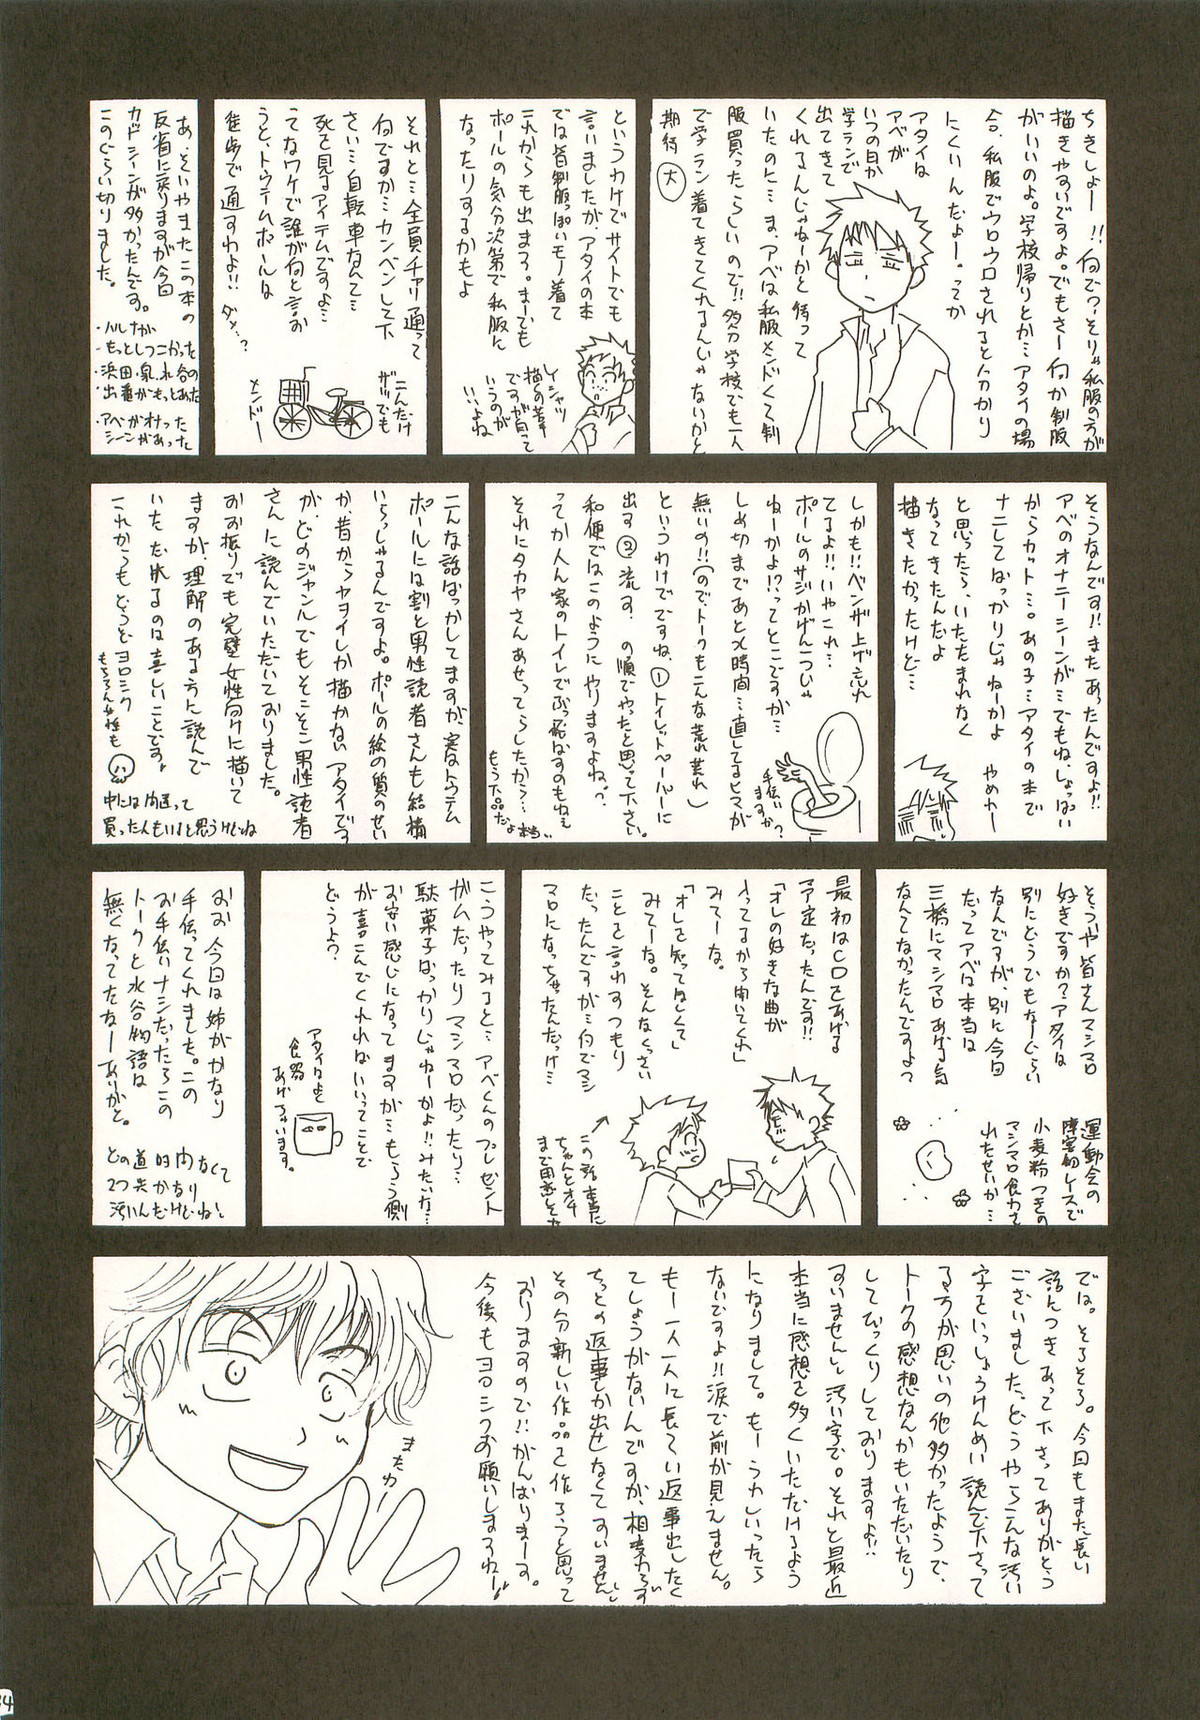 ちきしょー!!何で?そりゃ私服の方が
描きやすいですよ。でもさー何か制服
がいいのよ。学校帰りとか…アタイの場
合、私服でウロウロされると分かり
にくいんだよー。ってか
アタイは
アベが
いつの日か
学ランで
出てきて
くれるんじゃねーかと待って
いたのに…ま、アベは私服メンドくて制
服買ったらしいので!!多分学校でも一人
で学ラン着てきてくれるんじゃないかと
期待(大)
というわけでサイトでも
言いましたが、アタイの本
では皆制服っぽいモノ着て
これからも出ます。まーでも
ポールの気分次第で私服に
なったりするかもよ
Yシャツ
描くの苦手
ですが、だって
いうのが
いいよね
それと…全員チャリ通って
何ですか…カンベンして下
さい…自転車なんて…
死を見るアイテムですよ…
てなワケで誰が何と言お
うと、トウテムポールは
徒歩で通すわよ!!ダメ…?
こんだけ
ザツでも
メンドー
あ、そいやまたこの本の
反省に戻りますが今回
カドシーンが多かったんです。
このぐらい切りました。
・ハルナが
もっとしつこかった
・浜田・泉・水谷の
出番がもっとあった
・アベがオナった
シーンがあった
そうなんです!!またあったんですよ!!
アベのオナニーシーンが…でもね、しょっぱい
からカット…。あの子…アタイの本で
ナニしてばっかりじゃねーかよ やめれー
と思ったら、いたたまれなく
なってきたんだよ
描きたかったけど…
しかも!!ベンザ上げ忘れ
てるよ!!いやこれ…
ポールのサジかげん一つじゃ
ねーかよ!?ってとこですが…
しめ切りまであと〆時間…直してるヒマが
無いの!!(ので、トークもこんな荒れ荒れ)
というわけでですね、①トイレットペーパーに
出す②流す の順でやったと思って下さい。
和便ではこのようにやりますよね?
ってか人ん家のトイレでぶっ飛ばすのもねぇ
それにタカヤさんあせってらしたから…
もう下品だよ本当…
手伝い
ますか?
こんな話ばっかしてますが、実はトウテム
ポールには割と男性読者さんも結構
いらっしゃるんですよ。ポールの絵の質のせい
か、昔からヤヲイしか描かないアタイです
が、どのジャンルでもそこそこ男性読者
さんに読んでいただいておりました。
おお振りでも完璧女性向けに描いて
ますが、理解のある方に読んで
いただけるのは喜しいことです。
これからもどうぞヨロシク
もちろん女性も
中には間違って
買ったんもいると思うけどね
そういや皆さんマシマロ
好きですか?アタイは
別にどうでもなーぐらい
なんですが、別に今日
だってアベは本当は
三橋にマシマロあげる気
なんてなかったんですよ?
運動会の
障害物レースで
小麦粉つきの
マシマロ食わさ
れたせいか…
最初はCDをあげる
予定だったんです!!
「オレの好きな曲が
入ってるから聞いてくれ」
みてーな。
「オレを知ってほしくて」
みてーな。そんなくっさい
ことを言わすつもり
だったんですが…何でマシ
マロになっちゃったんだっけ…
この話本当に
ちゃんとオチ
まで用意してた
こうやってみると…アベくんのプレゼント
がムだったりマシマロだったり…
駄菓子ばっかりじゃねーかよ!!みたいな…
お安い感じになってますが…もらう側
が喜こんでくれればいいってことで
どうよ?
アタイはよく
食器
あげちゃいます。
おお 今日は姉がかなり
手伝ってくれました。この
お手伝いナシだったらこの
トークと水谷物語は
無くなってたなーありがと。
どの道時間なくて
2つ共かなり
汚いんだけどねし
では。そろそろ。今回もまた長い
話につきあって下さってありがとう
ございました。どうやらこんな汚い
字をいっしょうけんめい読んで下さって
る方が思いの他多かったようで、
トークの感想なんかもいただいたり
してびっくりしておりますよ!!
すいませんし汚い字で。それと最近
本当に感想を多くいただけるよう
になりまして。もーうれしいったら
ないですよ!!涙で前が見えません。
もー一人一人に長ぐい返事出したく
てしょうがないんですが、相変わらず
ちっとの返事しか出せなくてすいません
その分新しい作品を作ろうと思って
おりますので!!がんばりまーす。
今後もヨロシクお願いしますねー!
またカー
34